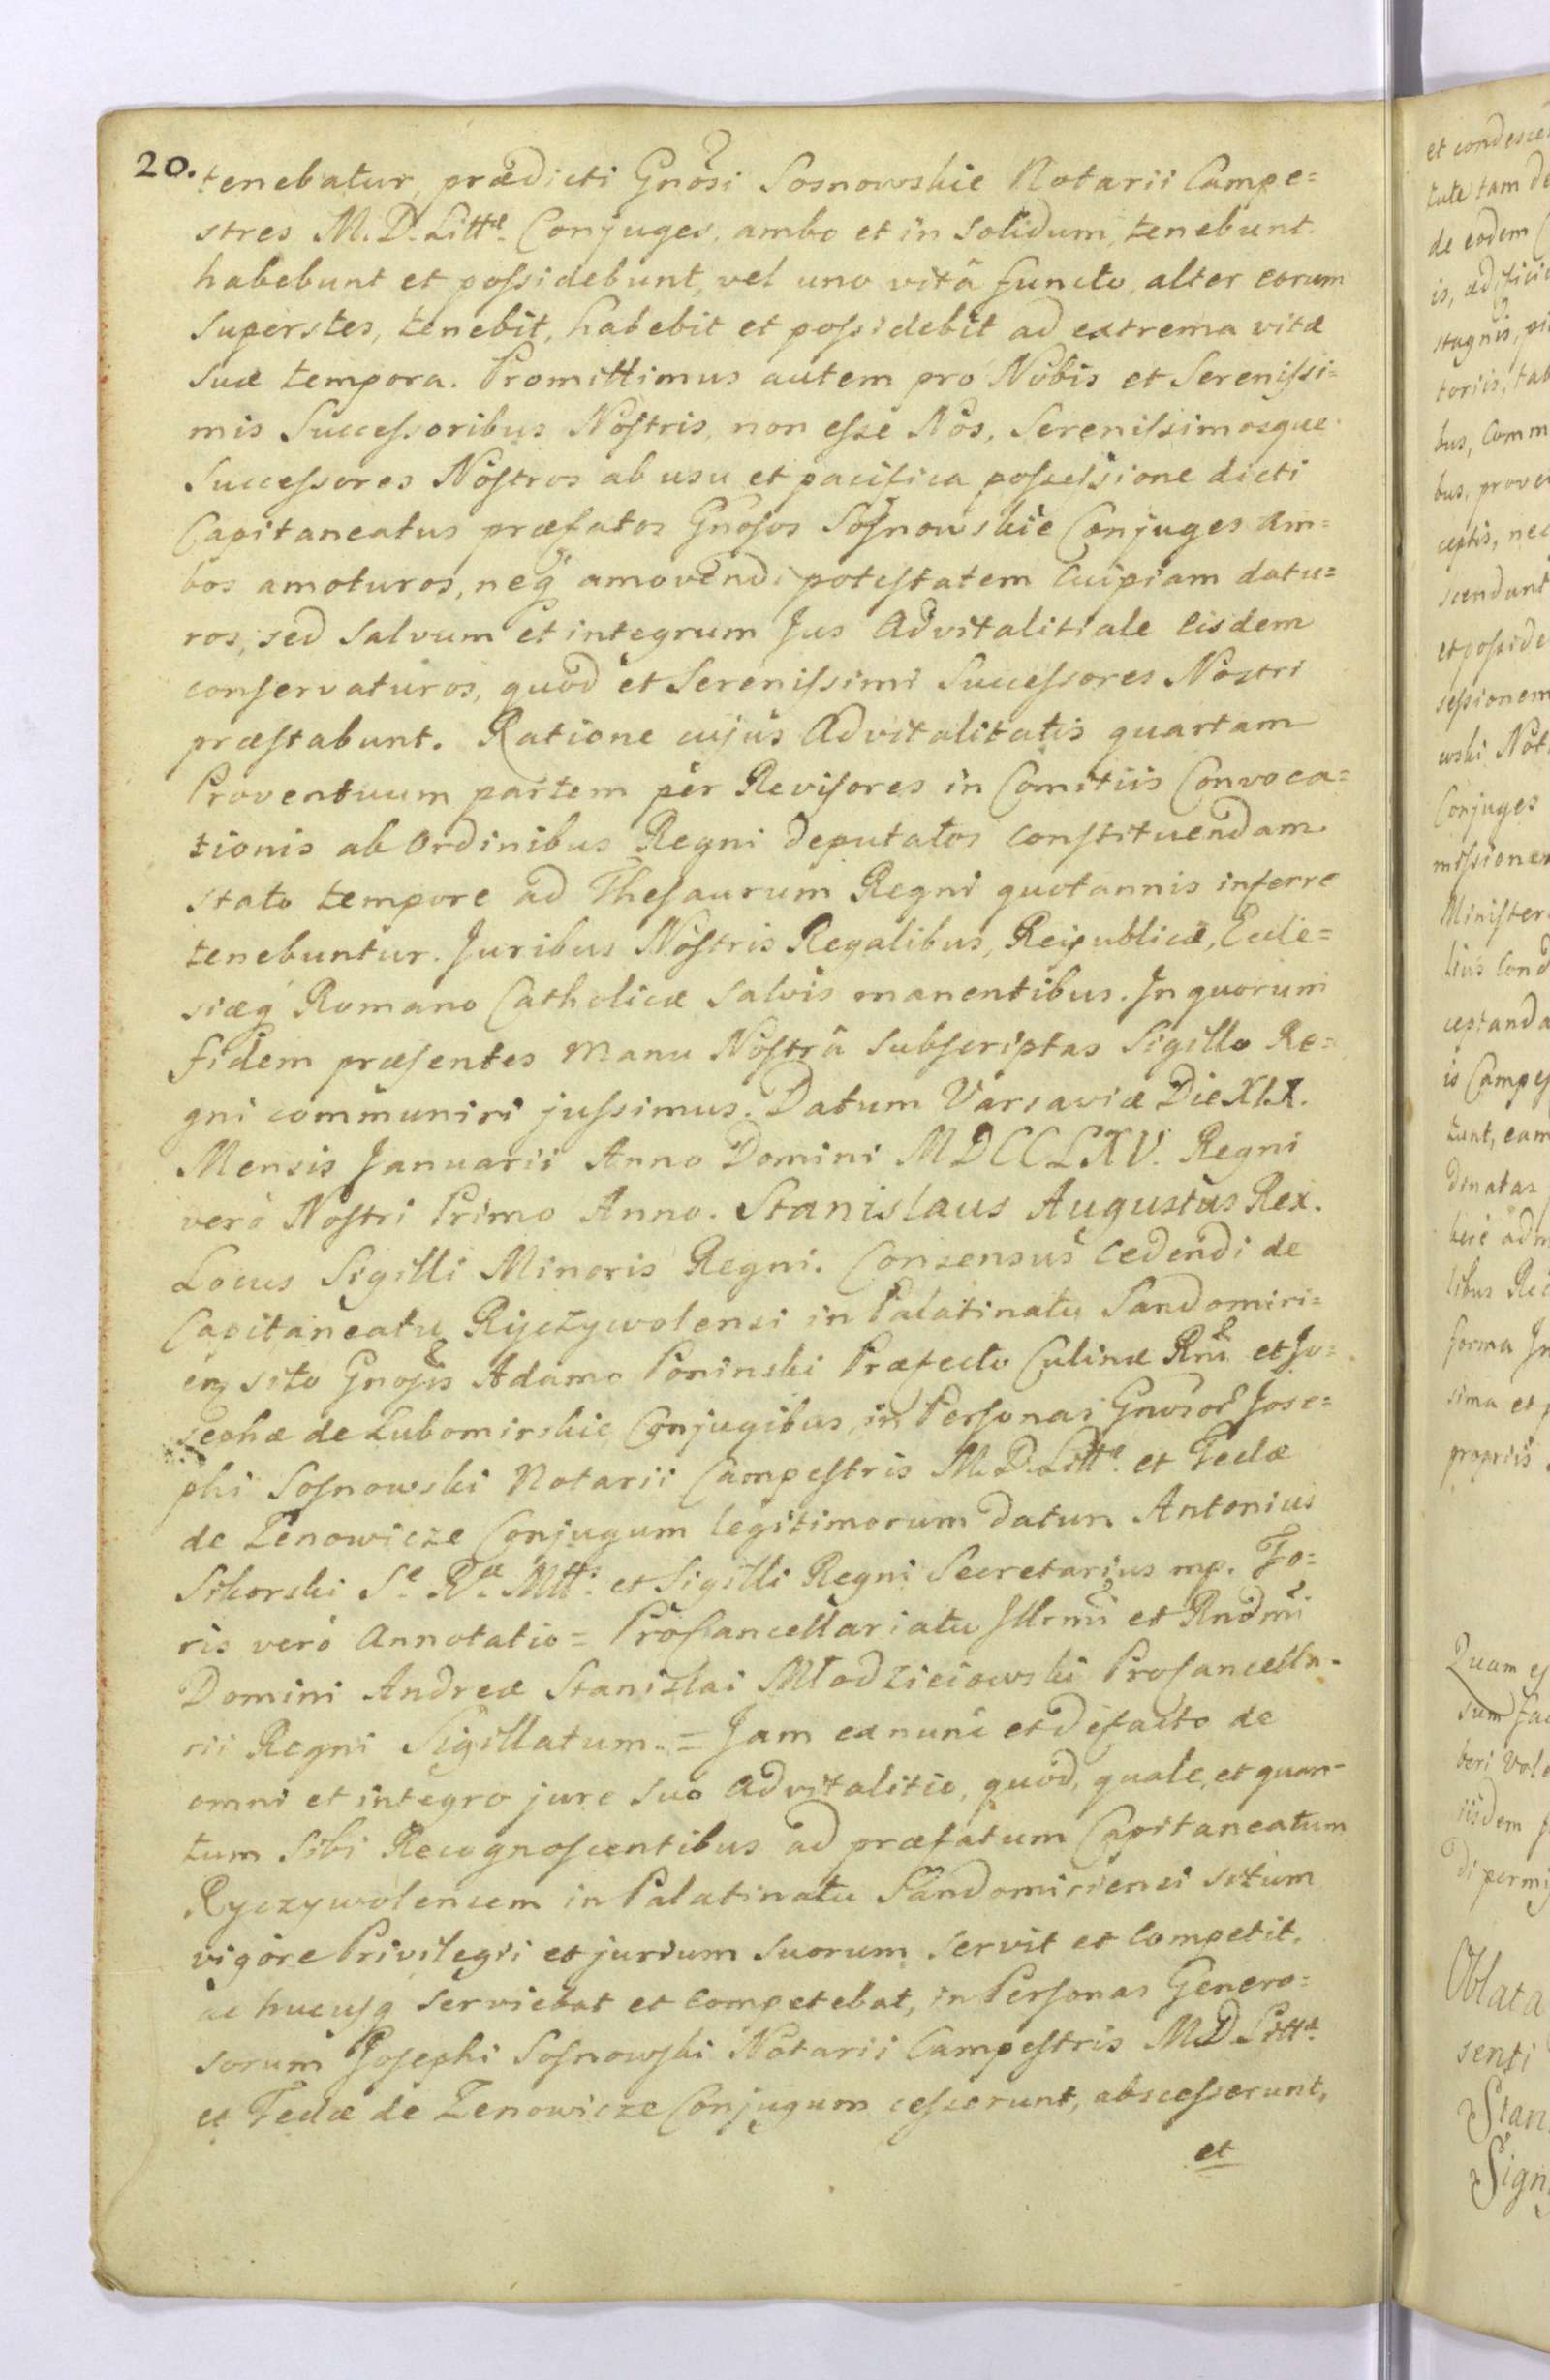 20. tenebatur, prædicti Gnosi Sosnowskie Notarii Campe=
stres M. D. Littæ. Conjuges, ambo et in solidum, tenebunt.
habebunt et possidebunt, vel uno vitâ functo, alter eorum
Superstes, tenebit, habebit et possidebit ad extrema vitæ
suæ tempora. Promittimus autem pro Nobis et Serenissi=
mis Successoribus Nostris, non esse Nos, Serenissimosque
Successores Nostros ab usu et pacifica possessione dicti
Capitaneatus præfatos Gnosos Sosnowskie Conjuges Am=
bos amoturos, neq amovendi potestatem cuipiam datu=
ros, sed salvum et integrum Jus Advitalitiale eisdem
conservaturos, quod et Serenissimi Successores Nostri
præstabunt. Ratione cujus Advitalitatis quartam
Proventuum partem per Revisores in Comitiis Convoca=
tionis ab Ordinibus Regni deputatos constituendam
stato tempore ad Thesaurum Regni quotannis inferre
tenebuntur. Juribus Nostris Regalibus, Reipublicæ, Eccle=
siæq Romano Catholicæ salvis manentibus. In quorum
fidem præsentes manu Nostrâ subscriptas Sigillo Re=
gni communiri jussimus. Datum Varsaviæ Die XIX.
Mensis Januarii Anno Domini MDCCLXV. Regni
verò Nostri Primo Anno. Stanislaus Augustus Rex.
Locus Sigilli Minoris Regni. Consensus cedendi de
Capitaneatu Ryczywolensi in Palatinatu Sandomiri=
en sito Gnosis Adamo Poninski Præfecto Culinæ Rni et Jo=
sephæ de Lubomirskie Conjugibus, in Personas Gnosor Jose=
phi Sosnowski Notarii Campestris M. D. Littæ. et Teclæ
de Zenowicze Conjugum legitimorum datur. Antonius
Sikorski Sæ Ræ Mttis et Sigilli Regni Secretarius mp. Fo=
ris verò Annotatio = Procancellariatu Illrmi et Rndmi
Domini Andreæ Stanislai Młodzieiowski Procancella-
rii Regni Sigillatum. = Jam ex nunc et de facto de
omni et integro jure suo advitalitio, quod, quale, et quan-
tum Sibi Recognoscentibus ad præfatum Capitaneatum
Ryczywolensem in Palatinatu Sandomiriensi situm
vigore Privilegii et jurium suorum servit et competit,
ac hucusq serviebat et competebat, in Personas Genero=
sorum Josephi Sosnowski Notarii Campestris M. D. Littæ
et Teclæ de Zenowicze Conjugum cesserunt, abscesserunt,
et
tute tam de
de eodem
stagnis,
toriis,
bus, Comm
bus, prove
ceptis, nec
scendunt
et posside
sessionem
wski Not
Conjuges
missionem
Minister
ceptanda
is Campes
dinatas
forma In
sima et
propriis
Quam
iisdem
di permi
Oblata
senti
Stan
Sign